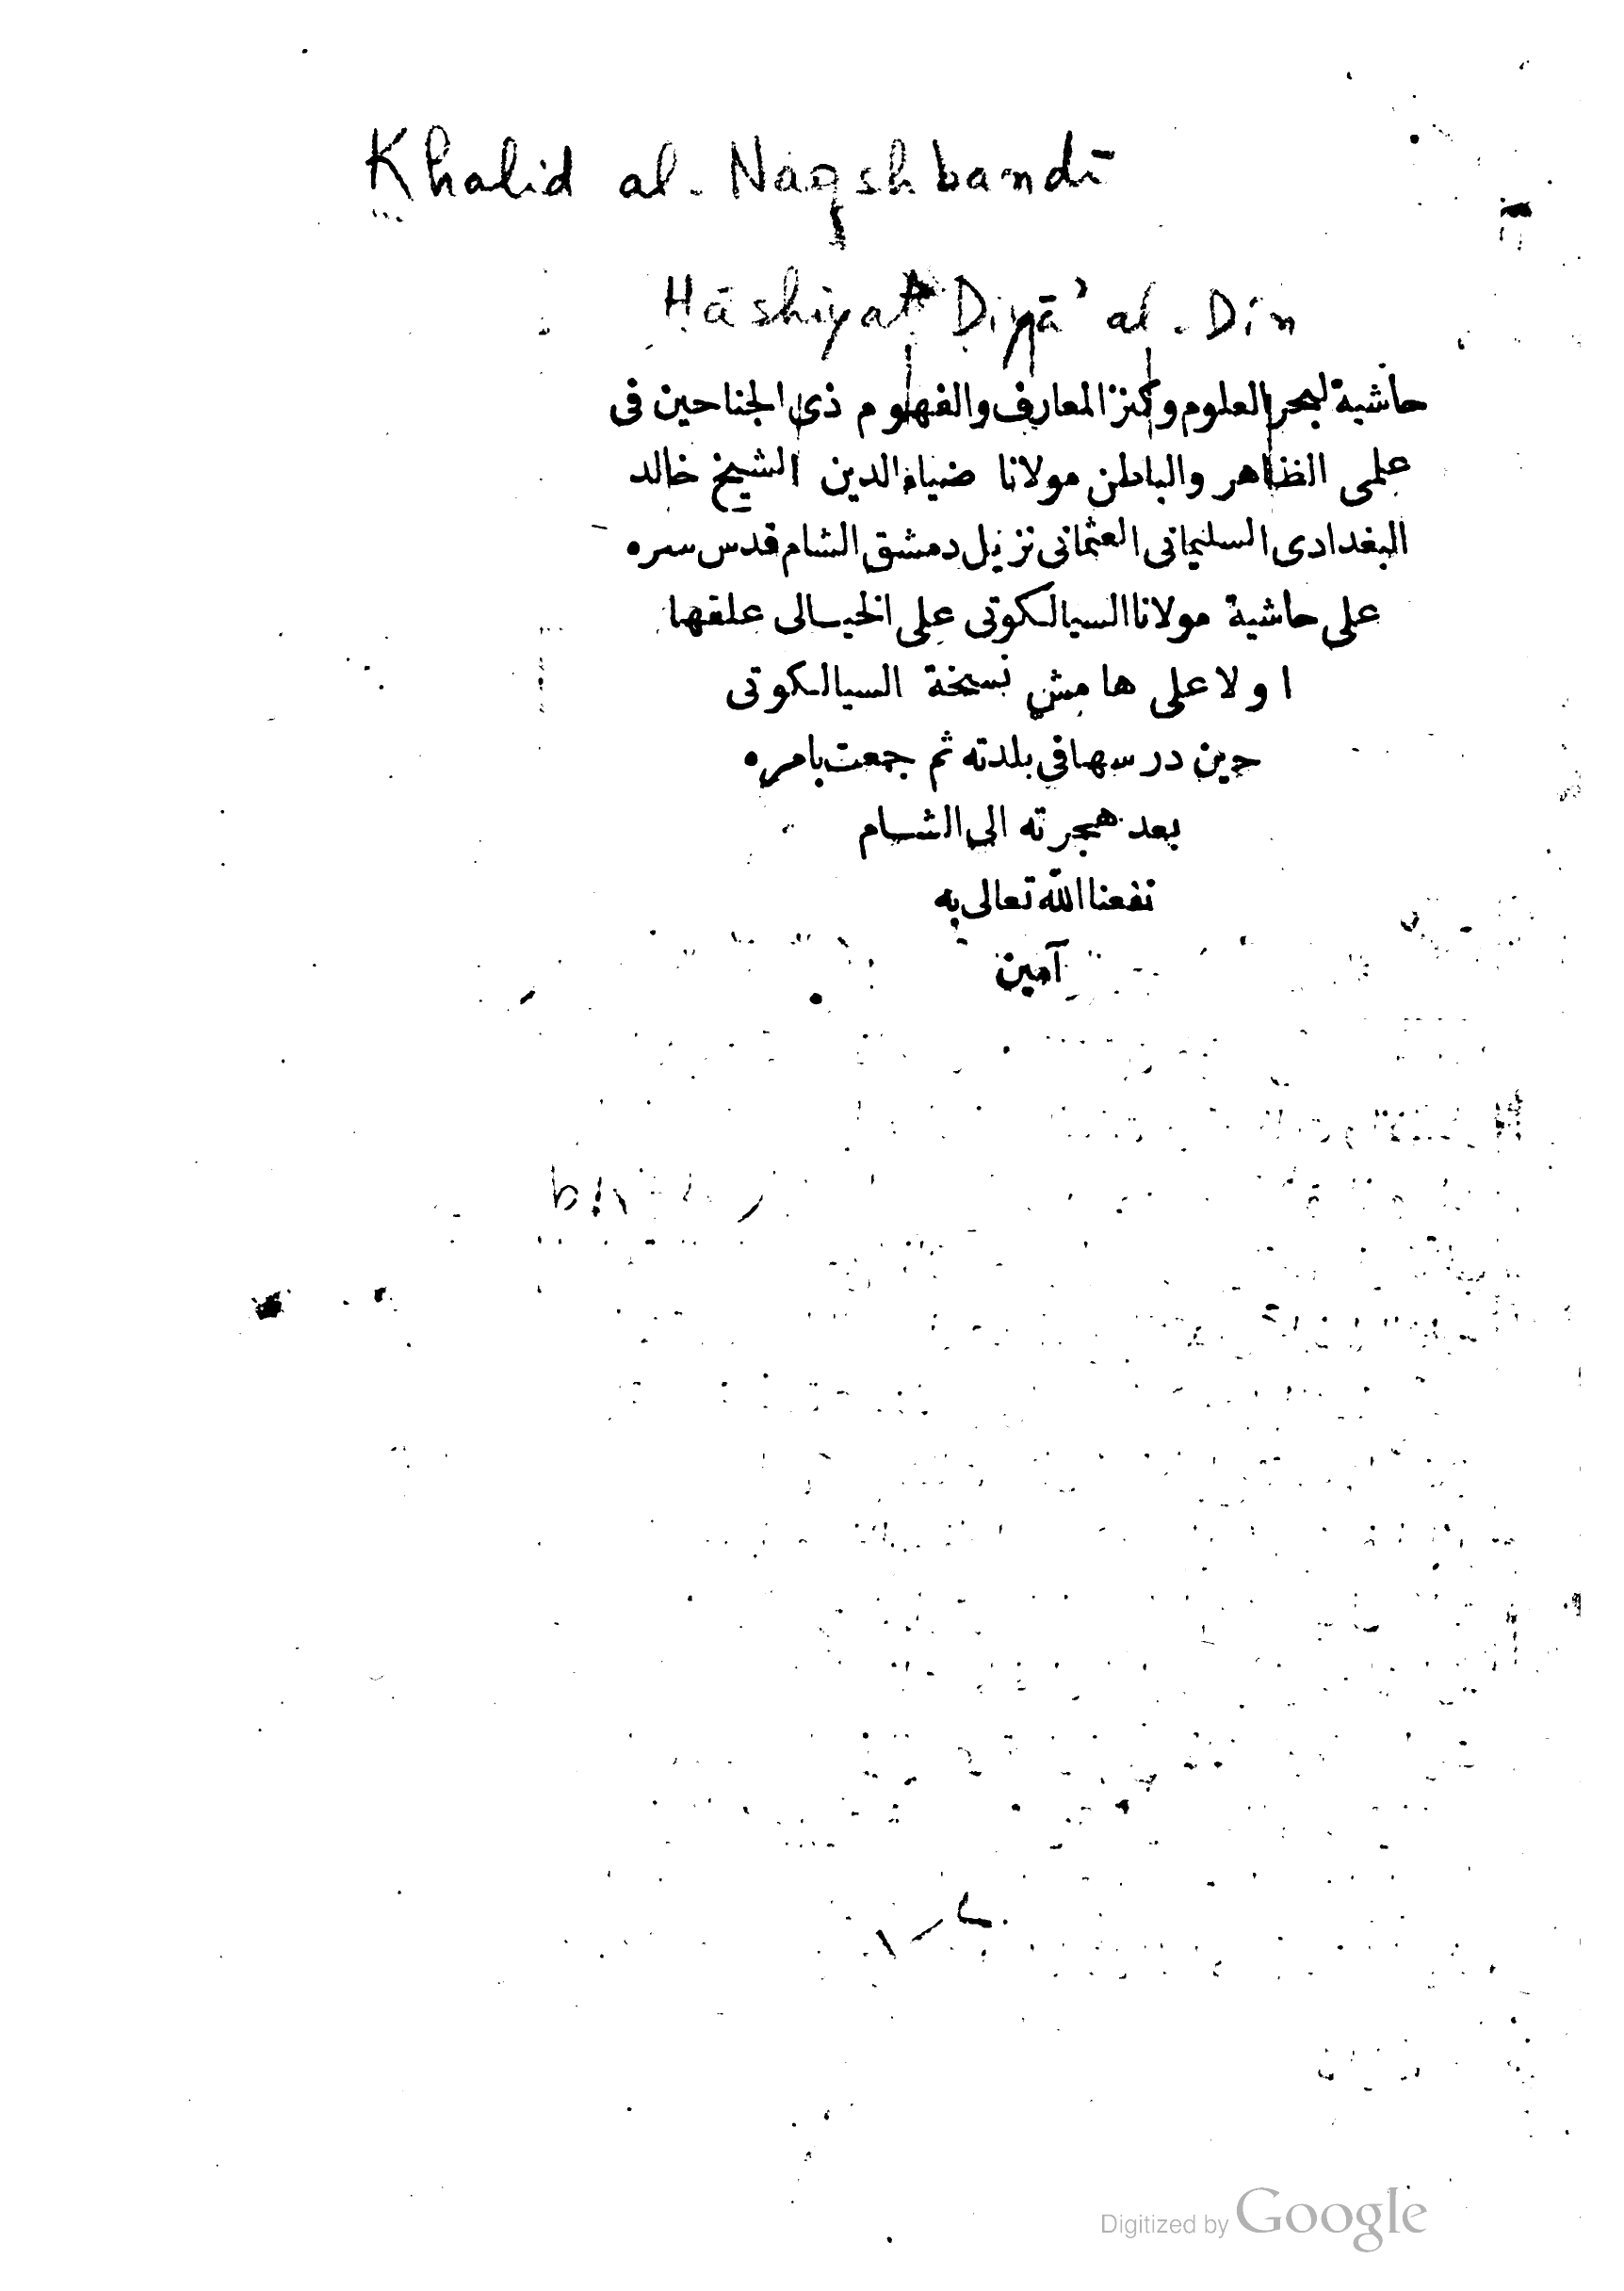 Khalid al-Naqshbandī
Ḥāshiyat Ḍiyā' al-Dīn
حاشية لبحر العلوم وكنز المعارف والفهوم ذى الجناحين فى
علمى الظاهر والباطن مولانا ضياء الدين الشيخ خالد
البغدادى السليمانى العثمانى نزيل دمشق الشام قدس سره
على حاشية مولانا السيالكوتى على الخيالى علقها
اولا على هامش نسخة السيالكوتى
حين درسها فى بلدته ثم جمعت بامره
بعد هجرته الى الشام
نفعنا الله تعالى به
آمين
Digitized by Google